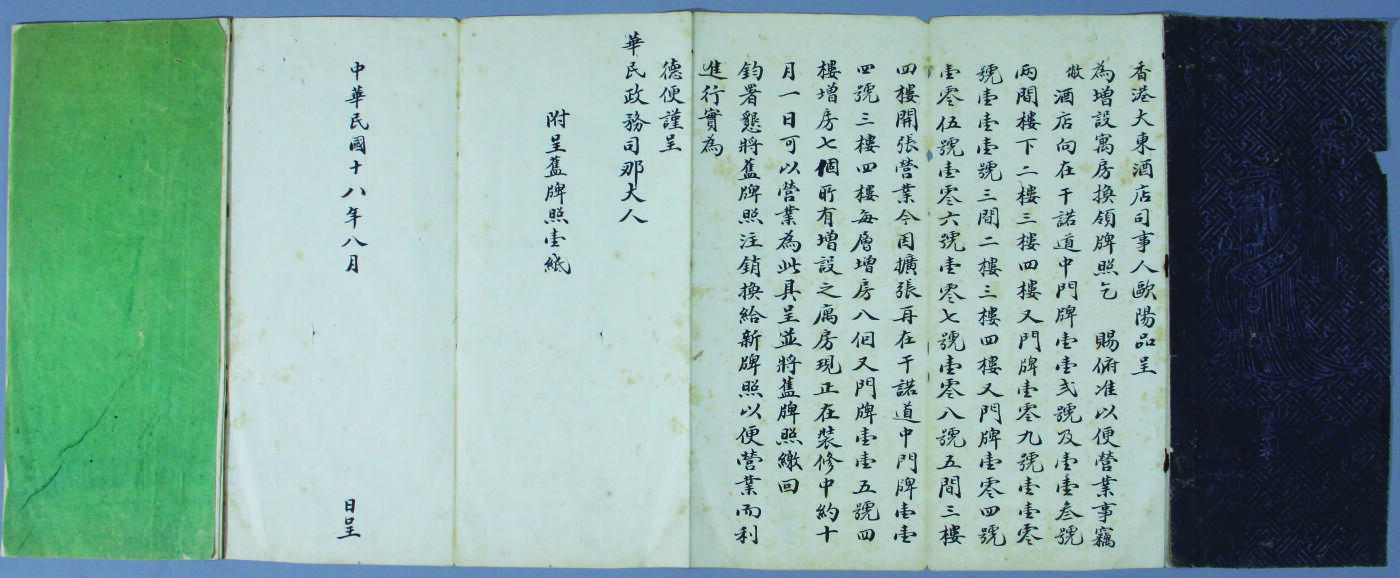 香港大東酒店司事人歐陽品呈
為增設寓房換領牌照乞 賜俯准以便營業事竊
敝酒店向在干諾道中門牌壹壹弍號及壹壹叁號
兩間樓下二樓三樓四樓又門牌壹零九號壹壹零
號壹壹壹號三間二樓三樓四樓又門牌壹零四號
壹零伍號壹零六號壹零七號壹零八號五間三樓
四樓開張營業今因擴張再在干諾道中門牌壹壹
四號三樓四樓每層增房八個又門牌壹壹五號四
樓增房七個所有增設之厲房現正在裝修中約十
月一日可以營業為此具呈並將舊牌照繳回
鈞署懇將舊牌照注銷換給新牌照以便營業而利
進行實為
德便謹呈
華民政務司那大人
附呈舊牌照壹紙
中華民國十八年八月 日呈